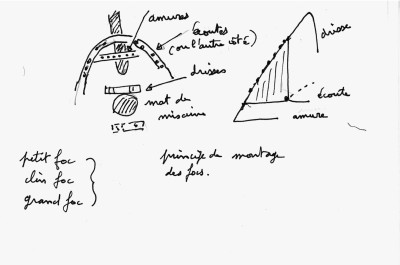 amures
écoutes
(ou l'autre côté)
drisses
mat de
misaine
drisse
écoute
amure
petit foc
clin foc
grand foc
principe de montage
des focs.